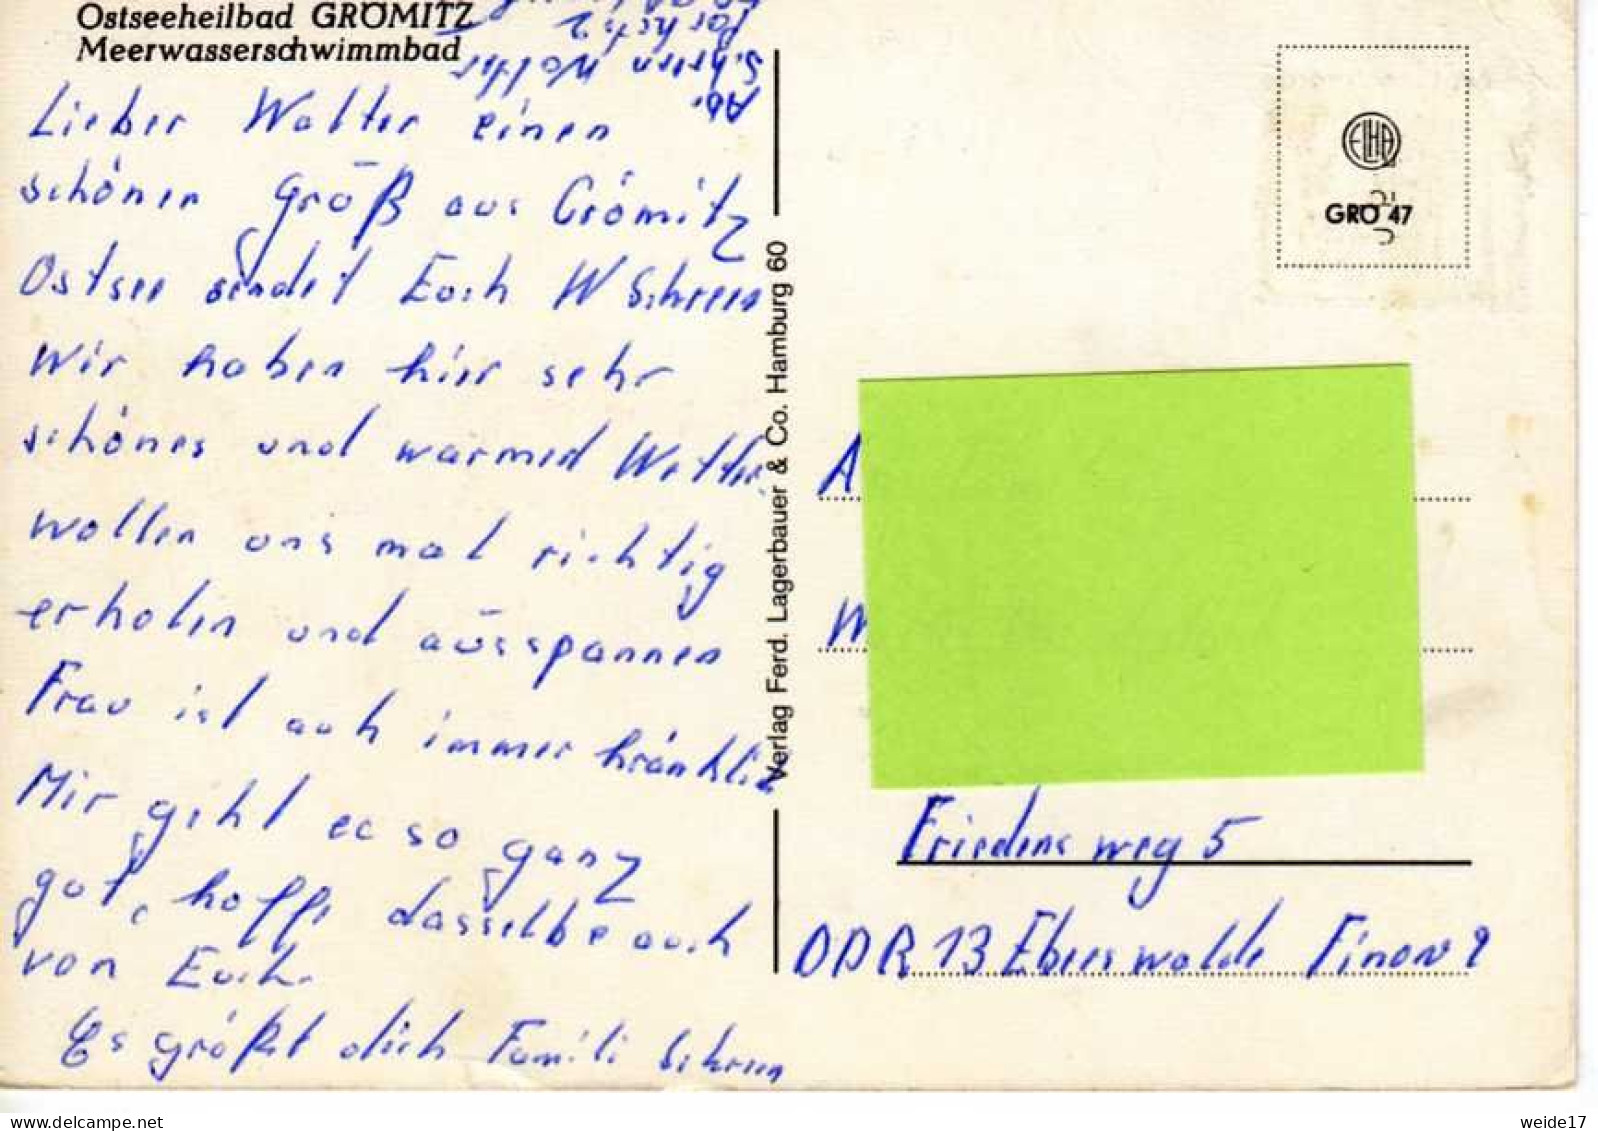 Ostseeheilbad GRÖMITZ
Meerwasserschwimmbad
Ab.
Schreen Walter
Lieber Walter einen
schönen Größ aus Grömitz
Ostsee sendet Euch W Schreen
Wir haben hier sehr
schönes und warmed Wetter
wollen uns mal richtig
erholen und ausspannen
Frau ist auch immer kränklich
Mir geht es so ganz
gut, hoffe dasselbe auch
von Euch.
Es größt dich Famili Schreen
Verlag Ferd. Lagerbauer & Co. Hamburg 60
ELHA
GRÖ 47
A
W
Friedens weg 5
DDR 13 Ebers walde Finow 2
weide17